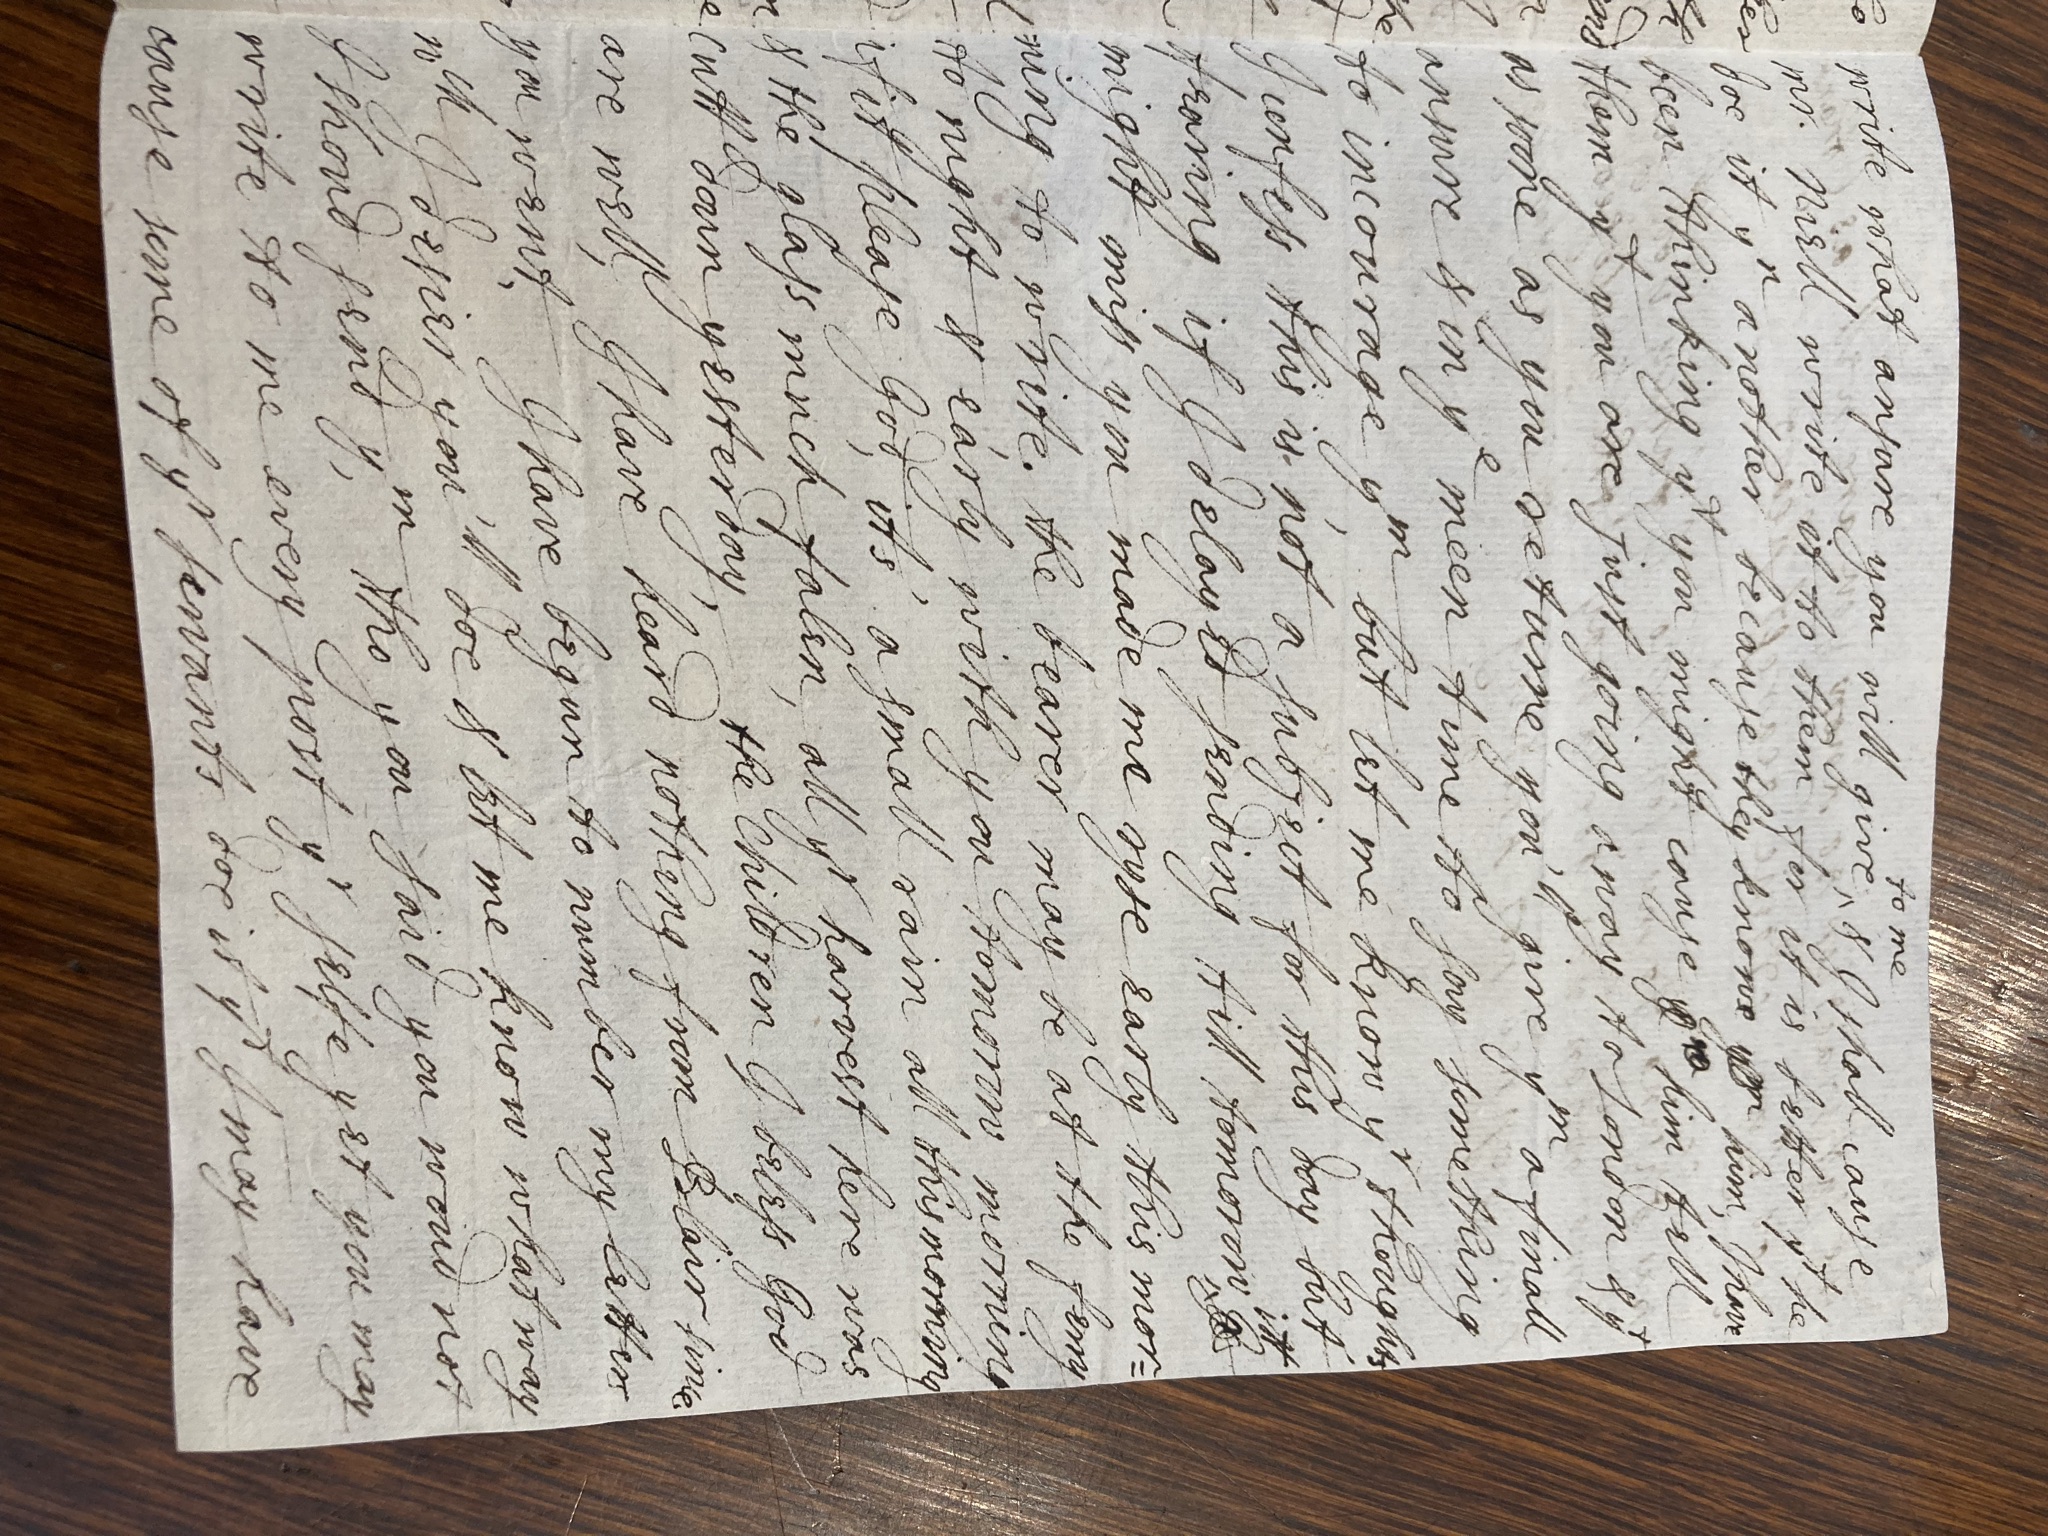 write what ansure you will give ^to me & I shall cause
mr. Niell write it to them for it is better yt he
doe it yn another because they knowe him, I have
been thinking yt you might cause him tell
them yt you are just going away to London & yt
as soone as you returne you'll give ym a finall
ansure & in ye meen time to say something
to incourage ym, but let me know yr thoughts,
I confess this is not a subject for this day but
fearing if I delayed sending till tomorow ^itt
might miss you made me ryse early this mor=
=ning to write. the bearer may be at the ferry
to night & early with you tomorow morning
if it please God, it's a small rain all this morning
& the glass much falen, all yr harvest here was
cutt doun yesterday, the children I beless God
are well, I have heard nothing from Blair since
you went, I have begun to number my letters
wch I desier you'll doe & let me know what way
I shoud send ym, tho you said you woud not
write to me every post yr selfe yet you may
cause some of yr servants doe it yt I may have